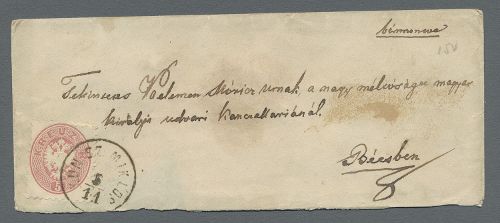 bérmentve
150
Tekintetes Kelemen Móricz urnak a nagy méltóságu magyar
királyi udvari kanczelláriánál.
Bécsben
KREUZER
SZ. MIKLOS
5
11